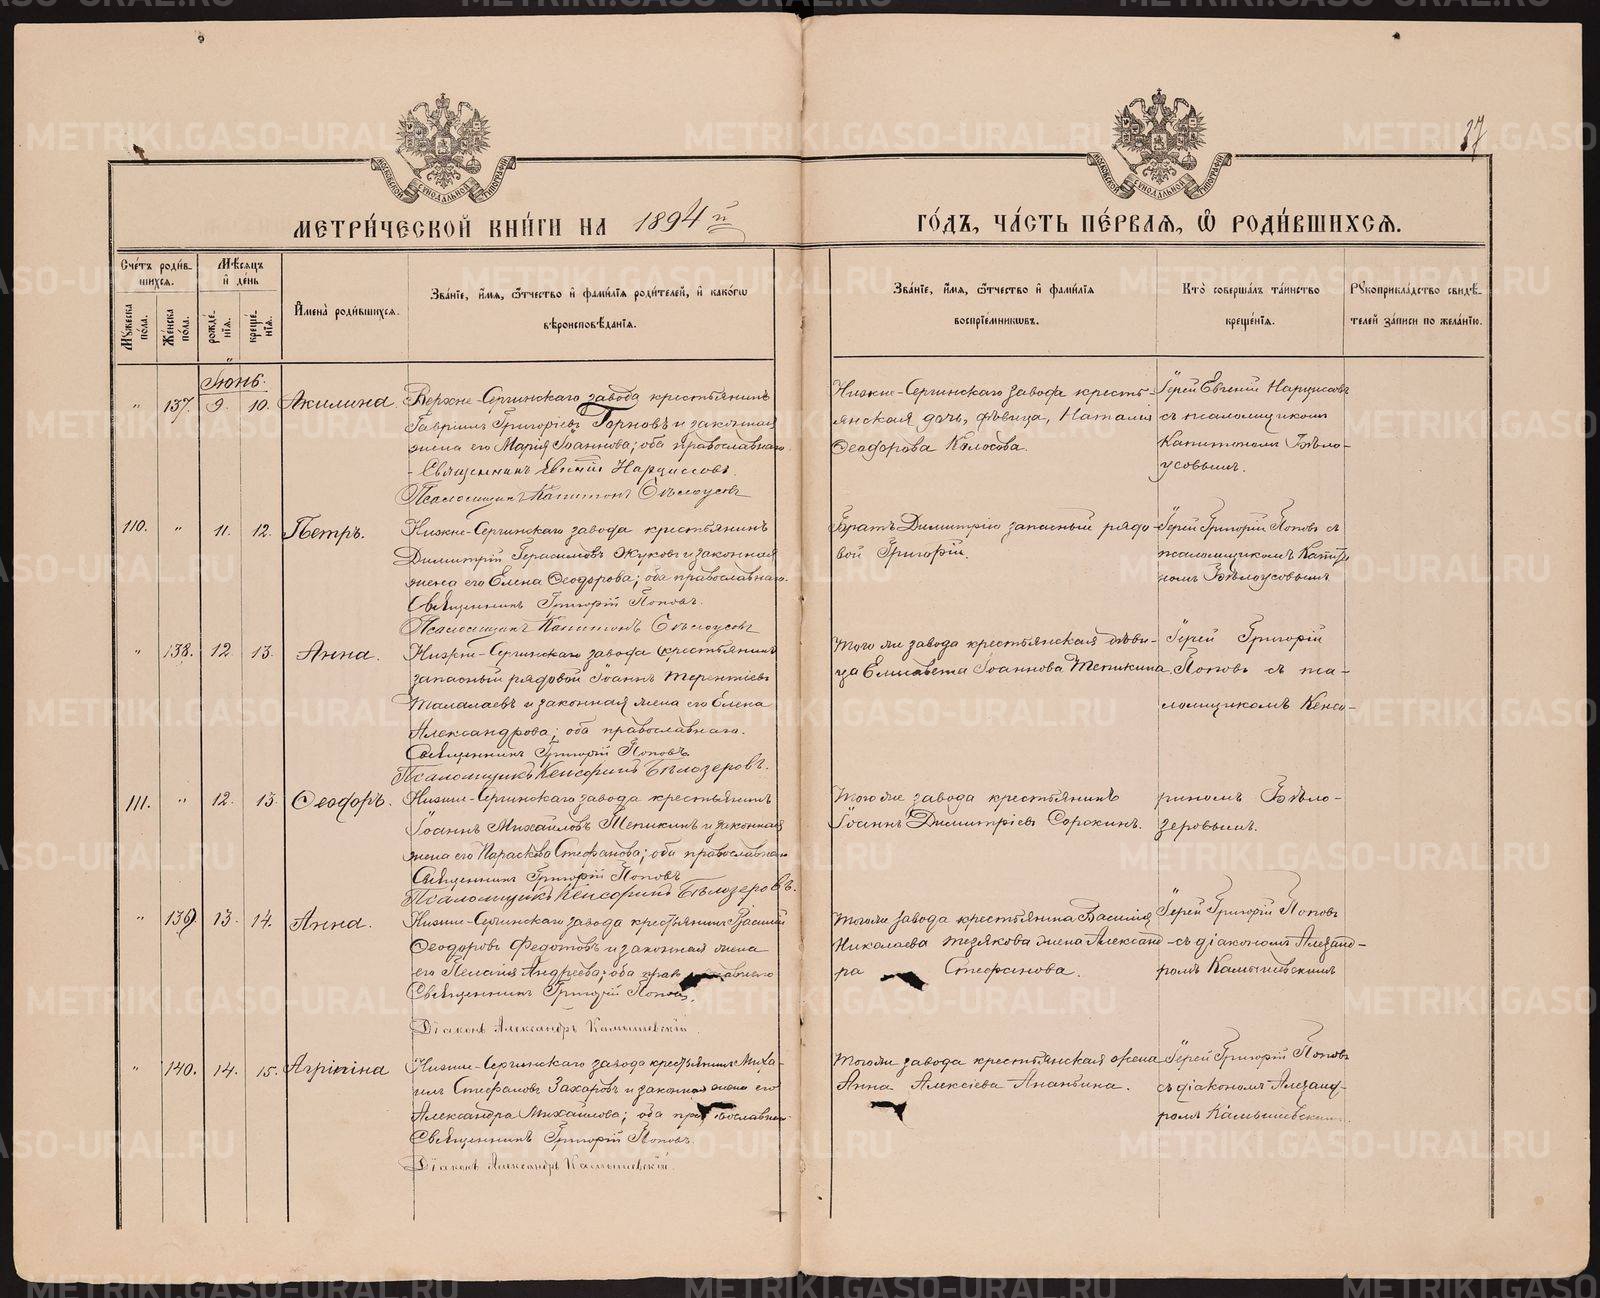 37
МЕТРИ́ЧЕСКОЙ КНИ́ГИ НА 1894 й ГО́ДЪ, ЧА́СТЬ ПЕ́РВАЯ, Ѡ РОДИ́ВШИХСЯ.
Сче́тъ роди́вшихся.
Му́жеска по́ла.
Же́нска по́ла.
Мѣ́сяцъ и де́нь
рожде́нїя.
креще́нїя.
Имена̀ роди́вшихся.
Зва́нїе, и́мя, ѻ́тчество и фами́лїя роди́телей, и како́гѡ
вѣроисповѣ́данїя.
Зва́нїе, и́мя, ѻ́тчество и фами́лїя
воспрїе́мникѡвъ.
Кто̀ соверша́лъ та́инство
креще́нїя.
Рꙋкоприкла́дство свидѣ́-
телей за́писи по жела́нїю.
Іюнь.
" 137. 9. 10. Акилина.
Верхне-Сергинскаго завода крестьянинъ
Гавріилъ Григоріевъ Горновъ и законная
жена его Марія Іоаннова; оба православнаго.
Священникъ Евгеній Нарциссовъ.
Псаломщикъ Капитонъ Бѣлоусовъ
Нижне-Сергинскаго завода кресть-
янская дочь, дѣвица, Наталія
Феодорова Колосова.
Іерей Евгеній Нарциссовъ
съ псаломщикомъ
Капитономъ Бѣло-
усовымъ.
110. " 11. 12. Петръ.
Нижне-Сергинскаго завода крестьянинъ
Димитрій Герасимовъ Жуковъ и законная
жена его Елена Феодорова; оба православнаго.
Священникъ Григорій Поповъ.
Псаломщикъ Капитонъ Бѣлоусовъ
Братъ Димитрія запасный рядо-
вой Григорій.
Іерей Григорій Поповъ съ
псаломщикомъ Капито-
номъ Бѣлоусовымъ
" 138. 12 13. Анна.
Нижне-Сергинскаго завода крестьянинъ
запасный рядовой Іоаннъ Терентіевъ
Талалаевъ и законная жена его Елена
Александрова; оба православнаго.
Священникъ Григорій Поповъ.
Псаломщикъ Ксенофонтъ Бѣлозеровъ.
Того же завода крестьянская дѣви-
ца Елисавета Іоаннова Тепикина.
Іерей Григорій
Поповъ съ пса-
ломщикомъ Ксено-
111. " 12. 13. Феодоръ.
Нижне-Сергинскаго завода крестьянинъ
Іоаннъ Михайловъ Тепикинъ и законная
жена его Параскева Стефанова; оба православнаго
Священникъ Григорій Поповъ
Псаломщикъ Ксенофонтъ Бѣлозеровъ.
Того же завода крестьянинъ
Іоаннъ Димитріевъ Сорокинъ.
Бѣло-
зеровымъ.
" 139 13. 14. Анна.
Нижне-Сергинскаго завода крестьянинъ Василій
Феодоровъ Федотовъ и законная жена
его Пелагія Андреева; оба православнаго
Священникъ Григорій Поповъ.
Діаконъ Александръ Камышевскій.
Того же завода крестьянина Василія
Николаева Тезякова жена Александ-
ра Стефанова.
Іерей Григорій Поповъ
съ діакономъ Александ-
ромъ Камышевскимъ
" 140. 14. 15. Агріпіна
Нижне-Сергинскаго завода крестьянинъ Миха-
илъ Стефановъ Захаровъ и законная жена его
Александра Михайлова; оба православнаго
Священникъ Григорій Поповъ.
Діаконъ Александръ Камышевскій.
Того же завода крестьянская жена
Анна Алексіева Ананьина.
Іерей Григорій Поповъ
съ діакономъ Александ-
ромъ Камышевскимъ.
METRIKI.GASO-URAL.RU